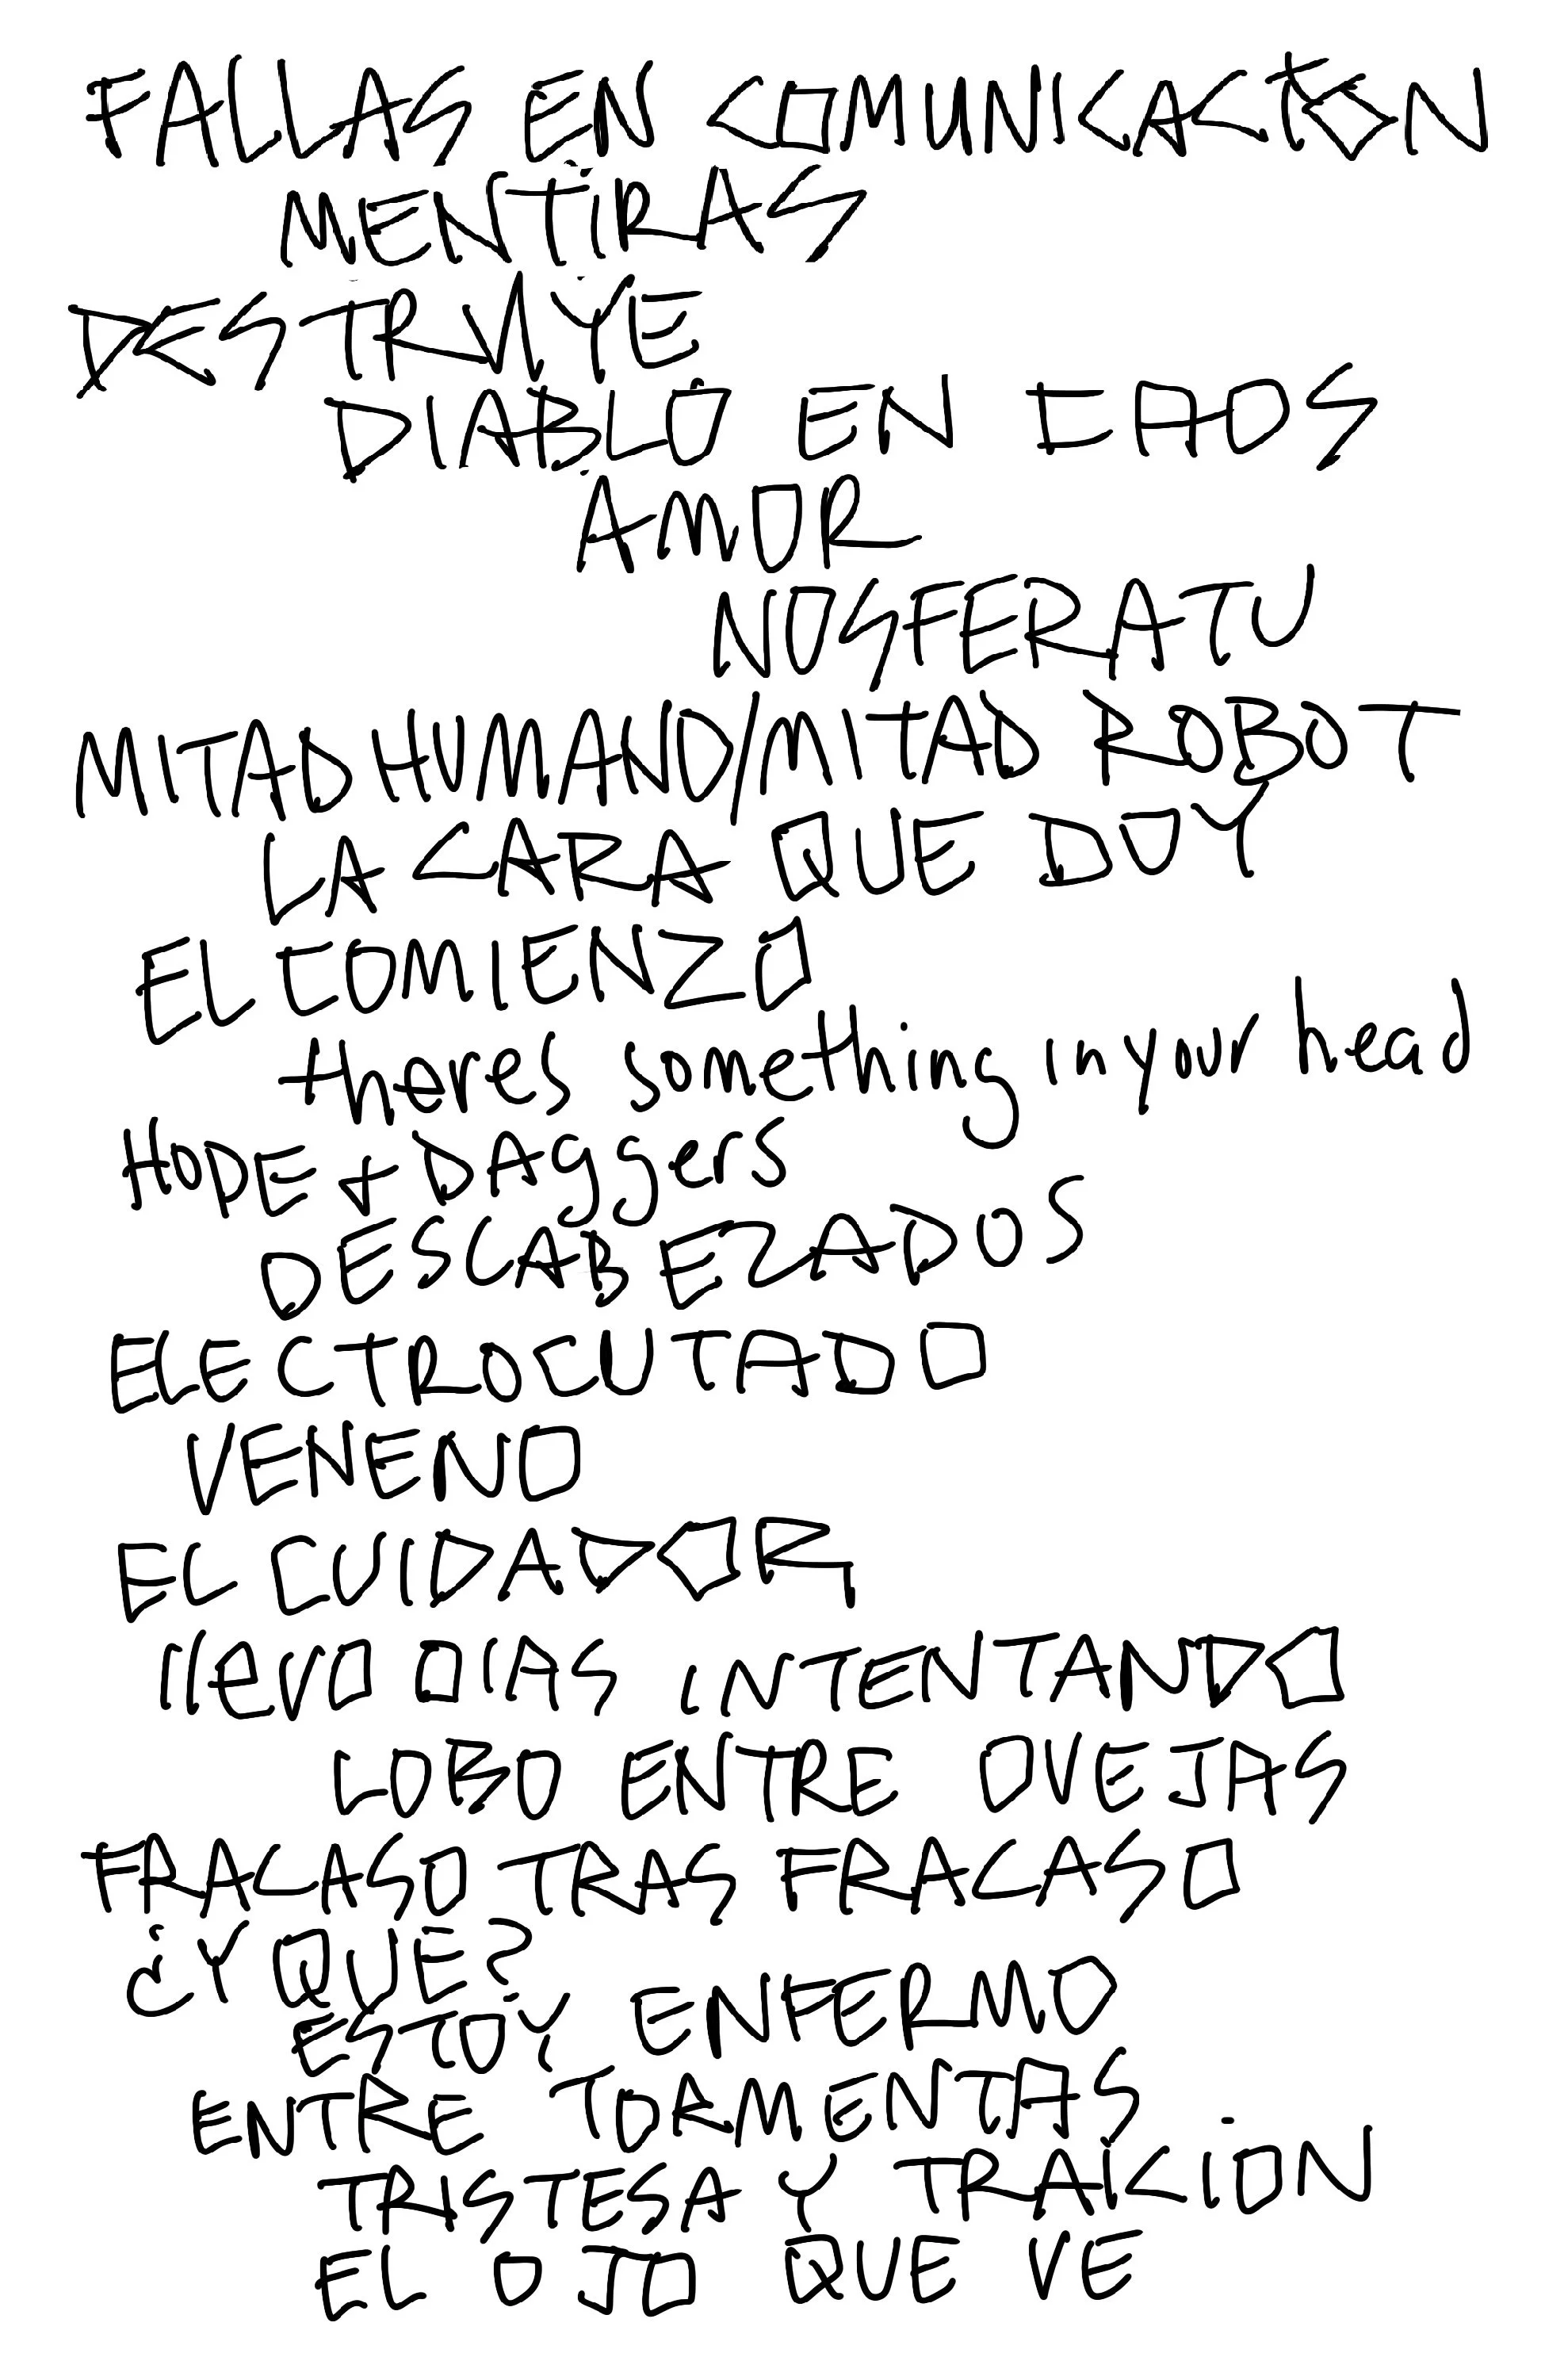 FALLAS EN COMUNICACIÓN
MENTIRAS
DESTRUYE
DIABLO EN
AMOR
NOSFERATU
MITAD HUMANO/MITAD ROBOT
LA CARA QUE DOY
EL COMIENZO
theres something in your head
HOPE & DAggers
DESCABEZADOS
ELECTROCUTADO
VENENO
EL CUIDADOR
llEVO DIAS INTENTANDO
LOBO ENTRE OVEJAS
FRACASO TRAS FRACASO
¿Y QUE?
ESTOY ENFERMO
ENTRE TORMENTAS
TRISTESA Y TRAICION
EL OJO QUE VE